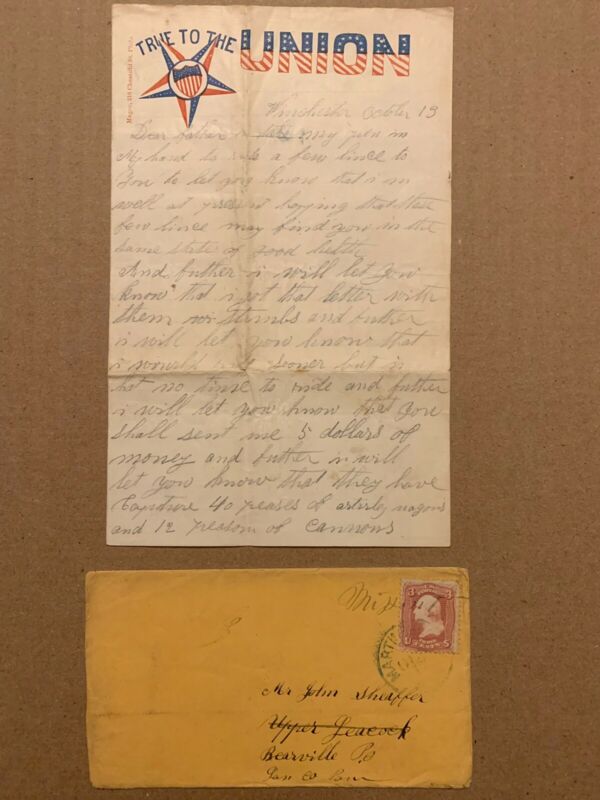 TRUE TO THE UNION
Magee, 316 Chestnut St. Phila.
Winchester October 13
Dear father i take my pen in
My hand to a few lince to
You to let you know that i m
well at present hopping that these
few lince may find you in the
same state of good helth
And futher i will let you
know that i got that letter with
them stambs and futher
i will let you know that
i would sooner but i
hat no time to ride and futher
i will let you know that you
shall sent me 5 dollars of
money and futher i will
let you know that they have
Capture 40 peases of artirley wagons
and 12 peason of cannons
3 3
U S
MARTIN
Mr John Sheaffer
Upper Leacock
Bearville Po
Lan Co Penn